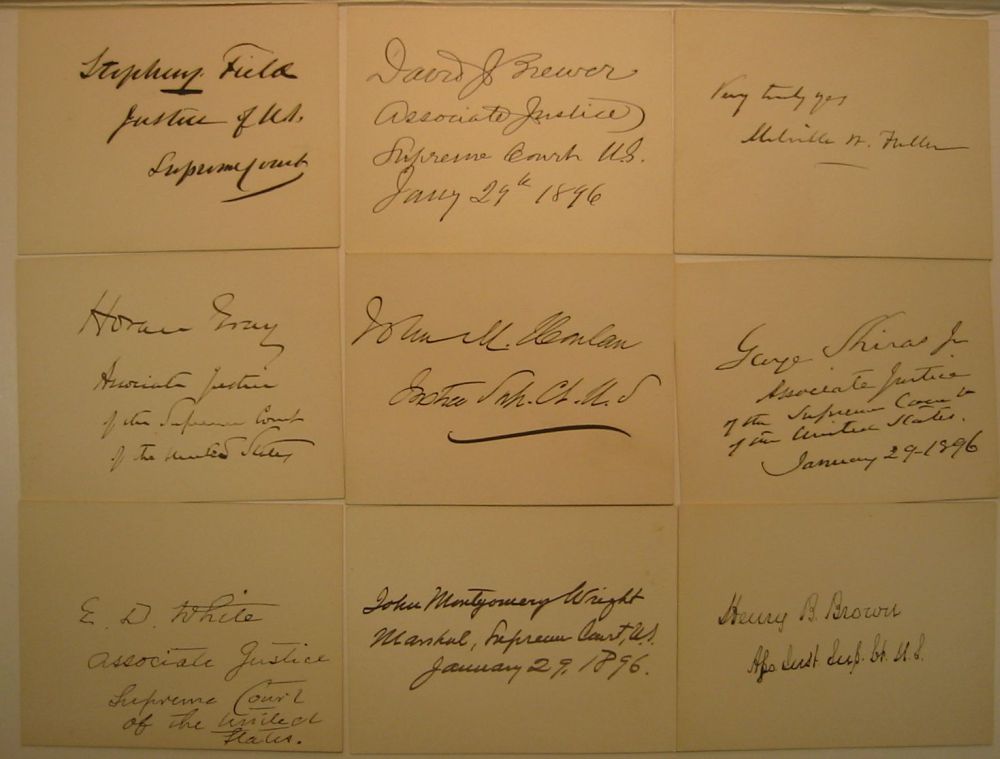 Stephen J. Field
Justice of U.S.
Supreme Court
David J Brewer
Associate Justice
Supreme Court U.S.
Jany 29th 1896
Very truly yrs
Melville W. Fuller
Horace Gray
Associate Justice
of the Supreme Court
of the United States
John M. Harlan
Justice Sup. Ct. U.S
George Shiras Jr
Associate Justice
of the Supreme Court
of the United States.
January 29-1896
E. D. White
Associate Justice
Supreme Court
of the United
States.
John Montgomery Wright
Marshal, Supreme Court, U.S.
January 29, 1896.
Henry B. Brown
Asso Just. Sup. Ct. U.S.